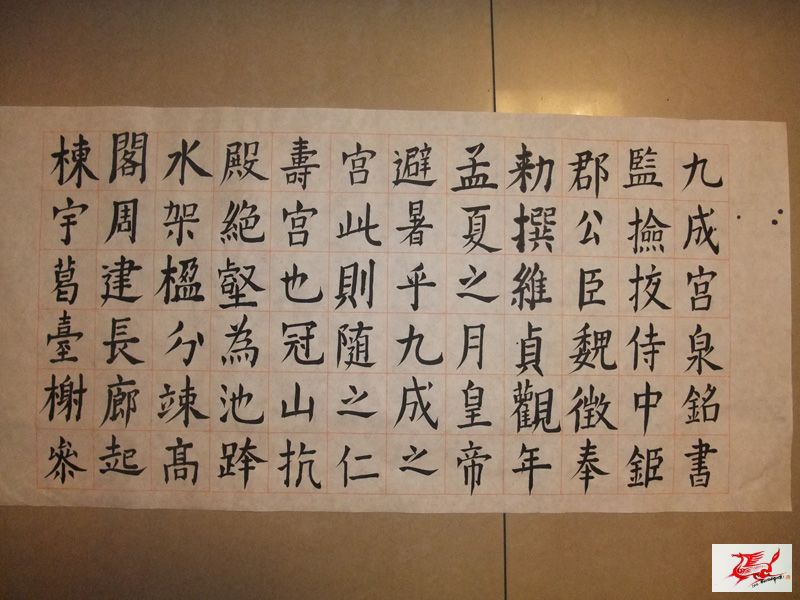 九成宮泉銘書
監撿挍侍中鉅
郡公臣魏徵奉
勑撰維貞觀年
孟夏之月皇帝
避暑乎九成之
宮此則隨之仁
壽宮也冠山抗
殿絕壑為池跨
水架楹分竦高
閣周建長廊起
棟宇葛臺榭參